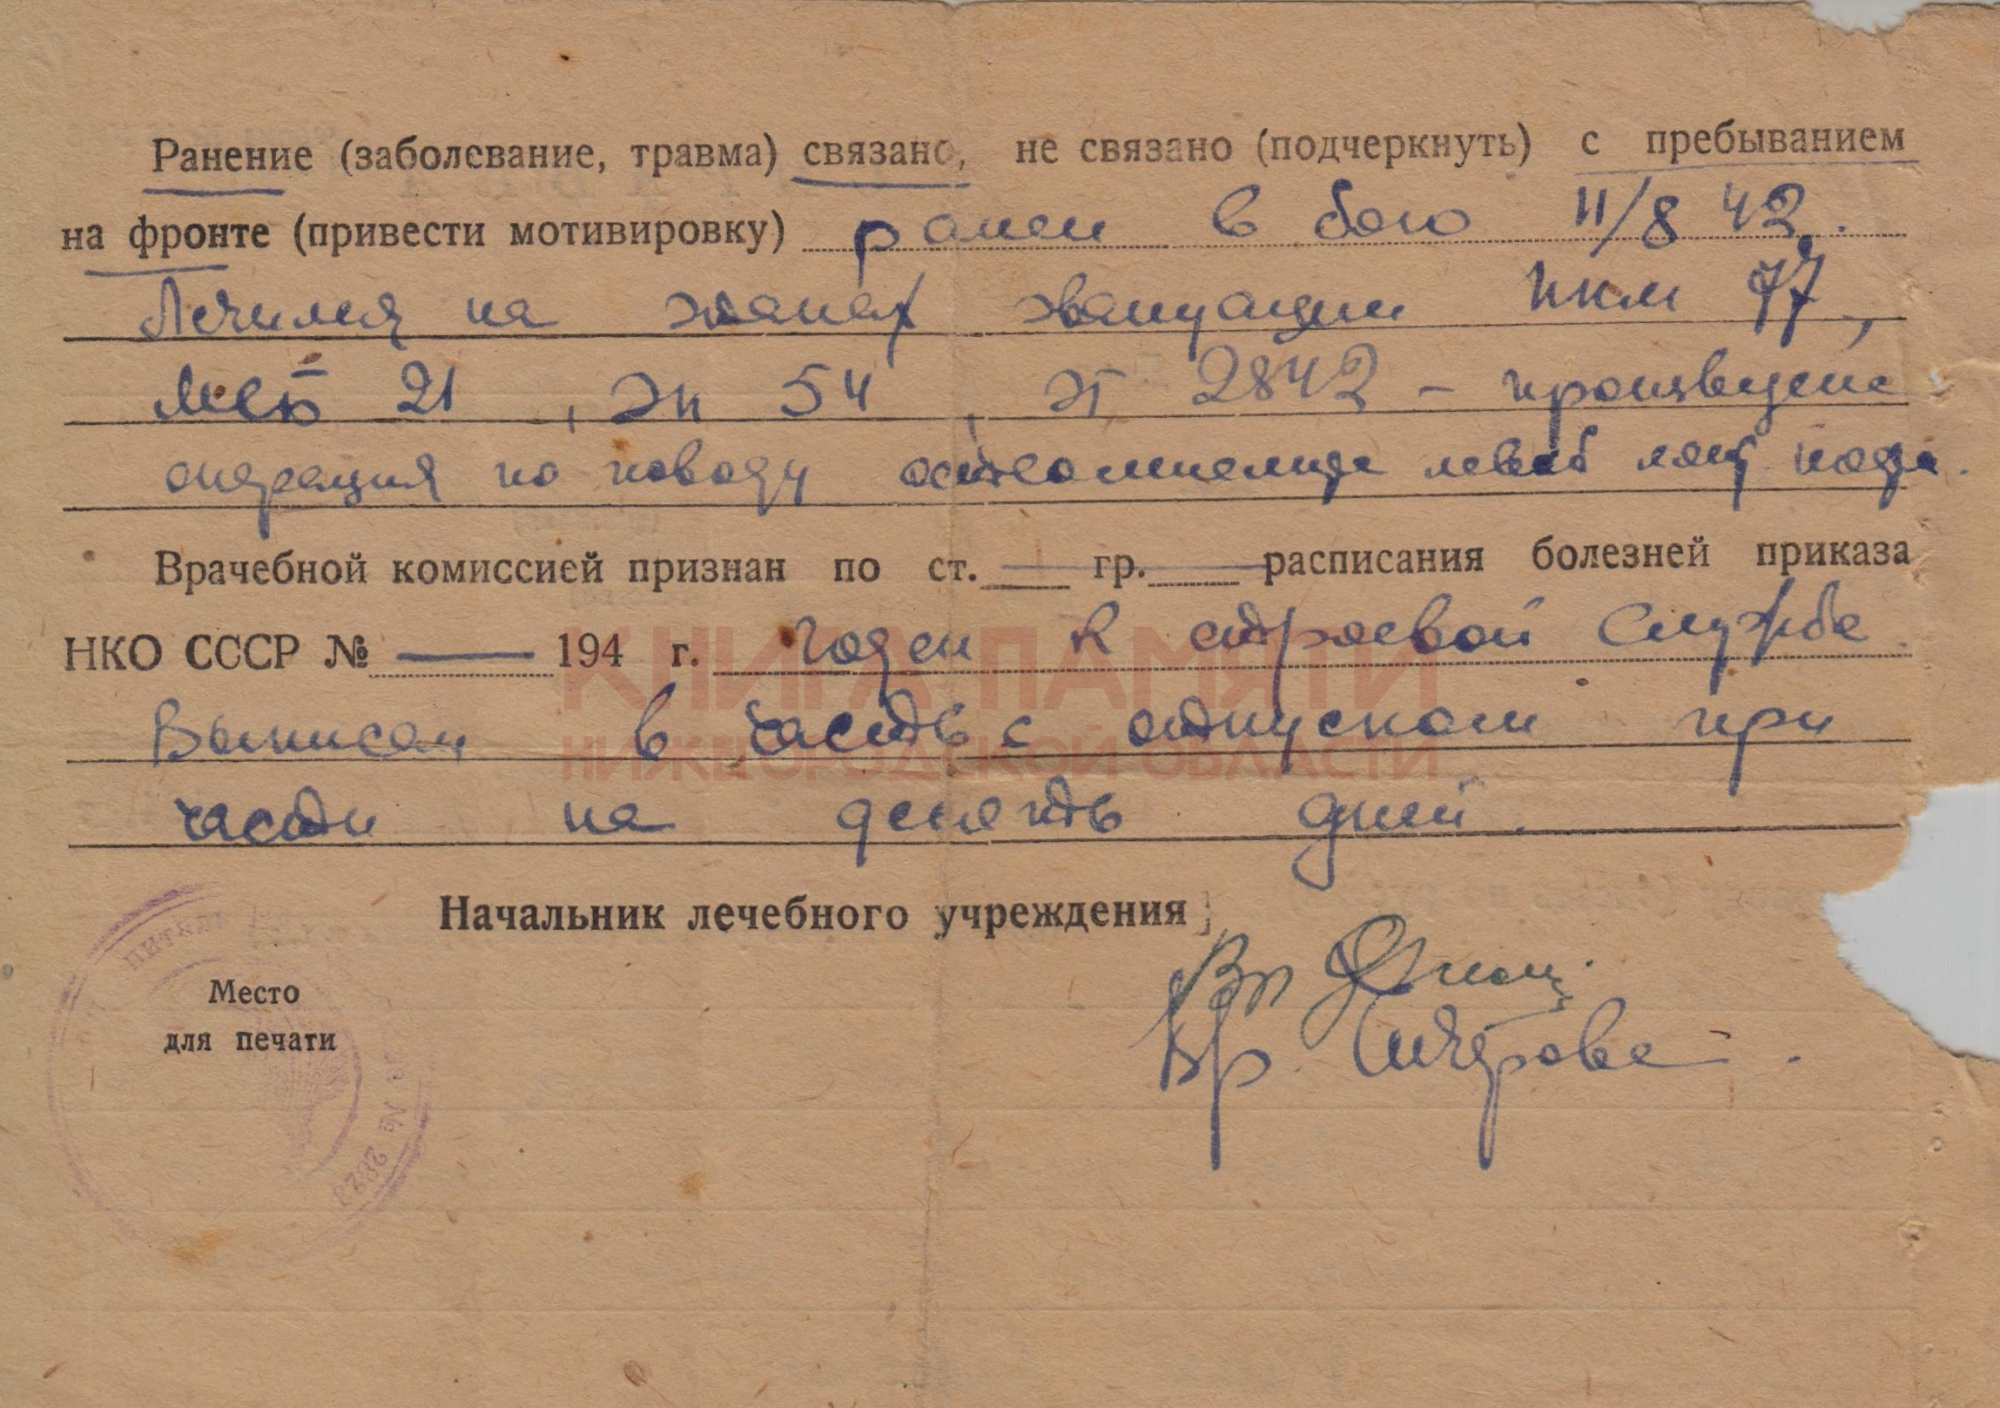 Ранение (заболевание, травма) связано, не связано (подчеркнуть) с пребыванием
на фронте (привести мотивировку) ранен в бою 11/8 42.
Лечился на этапах эвакуации 77,
21, ЭГ 54, ЭГ 2842 – произведена
операция по поводу остеомиелита левой
Врачебной комиссией признан по ст. — гр. — расписания болезней приказа
НКО СССР № — 194 г. годен к строевой службе.
Выписан в часть с отпуском при
части на девять дней.
КНИГА ПАМЯТИ
НИЖЕГОРОДСКОЙ ОБЛАСТИ
Начальник лечебного учреждения
Место
для печати
Вр.